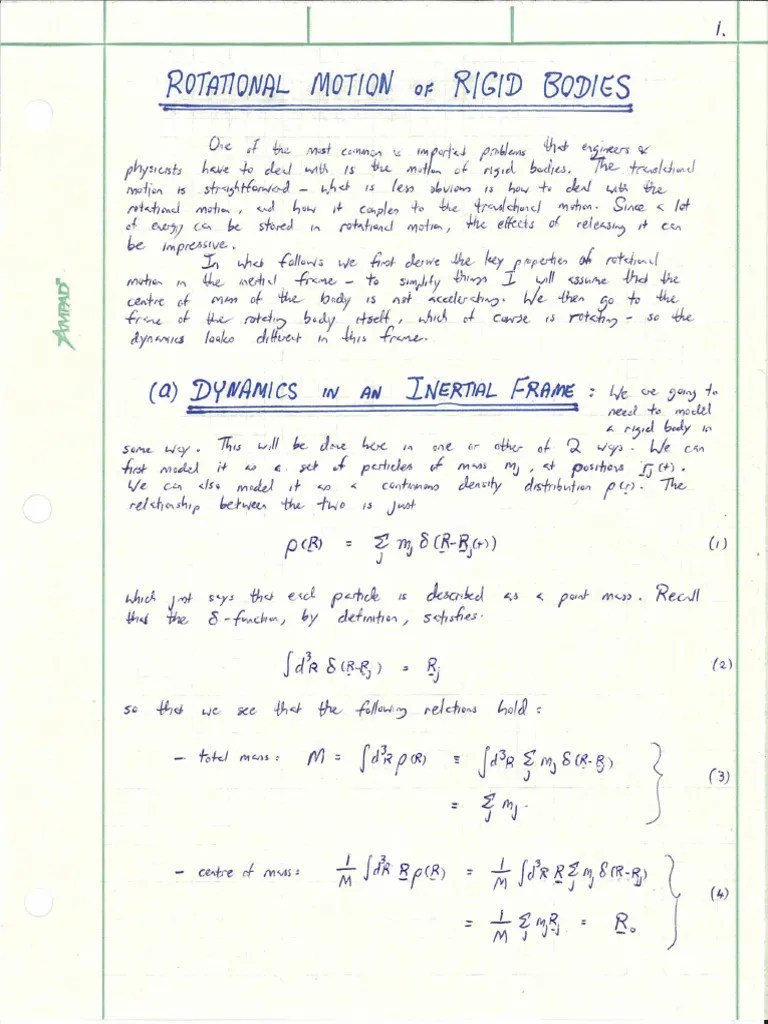 1.
ROTATIONAL MOTION OF RIGID BODIES
One of the most common & important problems that engineers &
physicists have to deal with is the motion of rigid bodies. The translational
motion is straightforward - what is less obvious is how to deal with the
rotational motion, and how it couples to the translational motion. Since a lot
of energy can be stored in rotational motion, the effects of releasing it can
be impressive.
In what follows we first derive the key properties of rotational
motion in the inertial frame - to simplify things I will assume that the
centre of mass of the body is not accelerating. We then go to the
frame of the rotating body itself, which of course is rotating - so the
dynamics looks different in this frame.
AMPAD
(a) DYNAMICS IN AN INERTIAL FRAME : We are going to
need to model
a rigid body in
some way. This will be done here in one or other of 2 ways. We can
first model it as a set of particles of mass mj, at positions rj(t).
We can also model it as a continuous density distribution ρ(r). The
relationship between the two is just
ρ(R) = Σj mj δ(R-Rj(t)) (1)
which just says that each particle is described as a point mass. Recall
that the δ-function, by definition, satisfies.
∫d³R δ(R-Rj) = Rj (2)
so that we see that the following relations hold :
- total mass: M = ∫d³R ρ(R) = ∫d³R Σj mj δ(R-Rj)
= Σj mj. (3)
- centre of mass: 1/M ∫d³R R ρ(R) = 1/M ∫d³R R Σj mj δ(R-Rj)
= 1/M Σj mj Rj = R₀ (4)